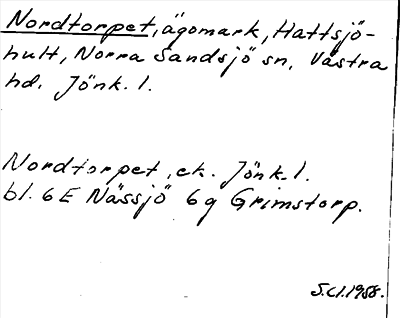 Nordtorpet, ägomark, Hattsjö-
hult, Norra Sandsjö sn, Västra
hd, Jönk. l.
Nordtorpet, ek. Jönk. l.
bl. 6E Nässjö 6g Grimstorp.
1958.